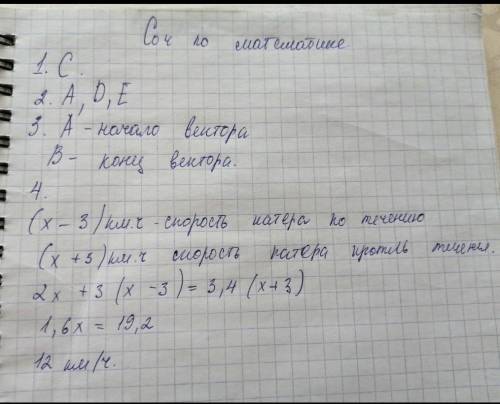 Соч по математике
1. С.
2. А, D, E
3. А - начало вектора
В - конец вектора.
4.
(х - 3) км.ч - скорость катера по течению
(х + 3) км.ч скорость катера против течения.
2х + 3 (х - 3) = 3,4 (х+3)
1,6х = 19,2
12 км/ч.